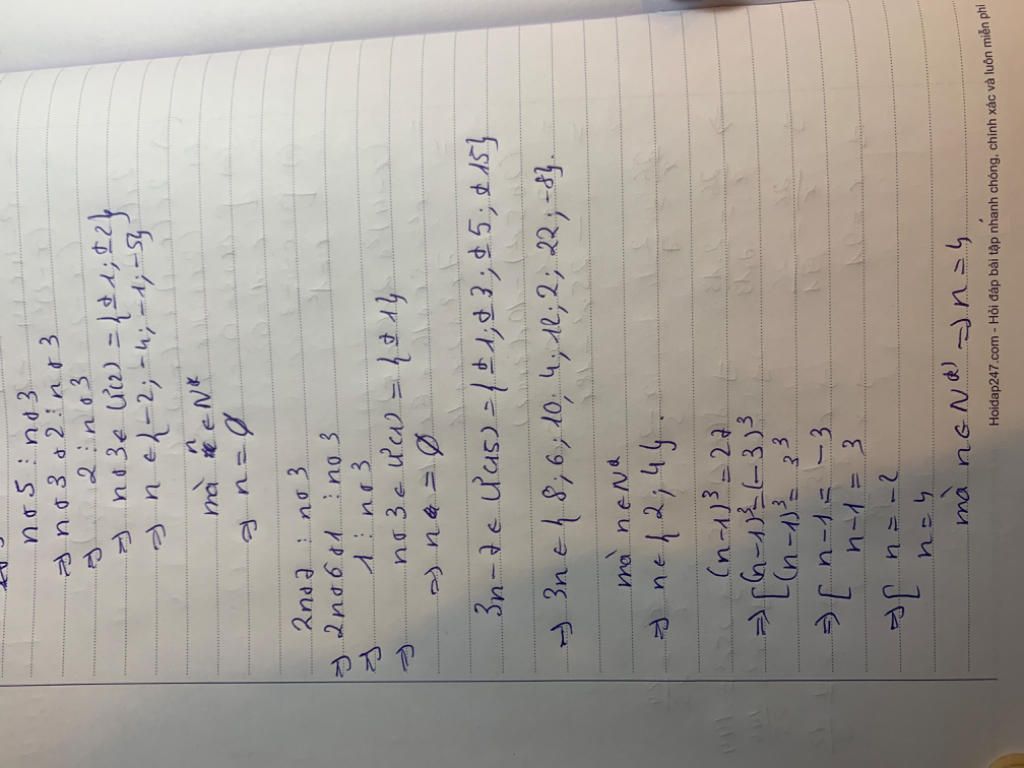 n+5 ⋮ n+3
⇒ n+3+2 ⋮ n+3
⇒ 2 ⋮ n+3
⇒ n+3 ∈ Ư(2) = {±1; ±2}
⇒ n ∈ {-2; -4; -1; -5}
mà n ∈ N*
⇒ n = ∅
2n+7 ⋮ n+3
⇒ 2n+6+1 ⋮ n+3
⇒ 1 ⋮ n+3
⇒ n+3 ∈ Ư(1) = {±1}
⇒ n = ∅
3n-7 ∈ Ư(15) = {±1; ±3; ±5; ±15}
⇒ 3n ∈ {8; 6; 10; 4; 12; 2; 22; -8}.
mà n ∈ N*
⇒ n ∈ {2; 4}.
(n-1)³ = 27
⇒ [(n-1)³ = (-3)³
(n-1)³ = 3³
⇒ [n-1 = -3
n-1 = 3
⇒ [n = -2
n = 4
mà n ∈ N* ⇒ n = 4
Hoidap247.com - Hỏi đáp bài tập nhanh chóng, chính xác và luôn miễn phí